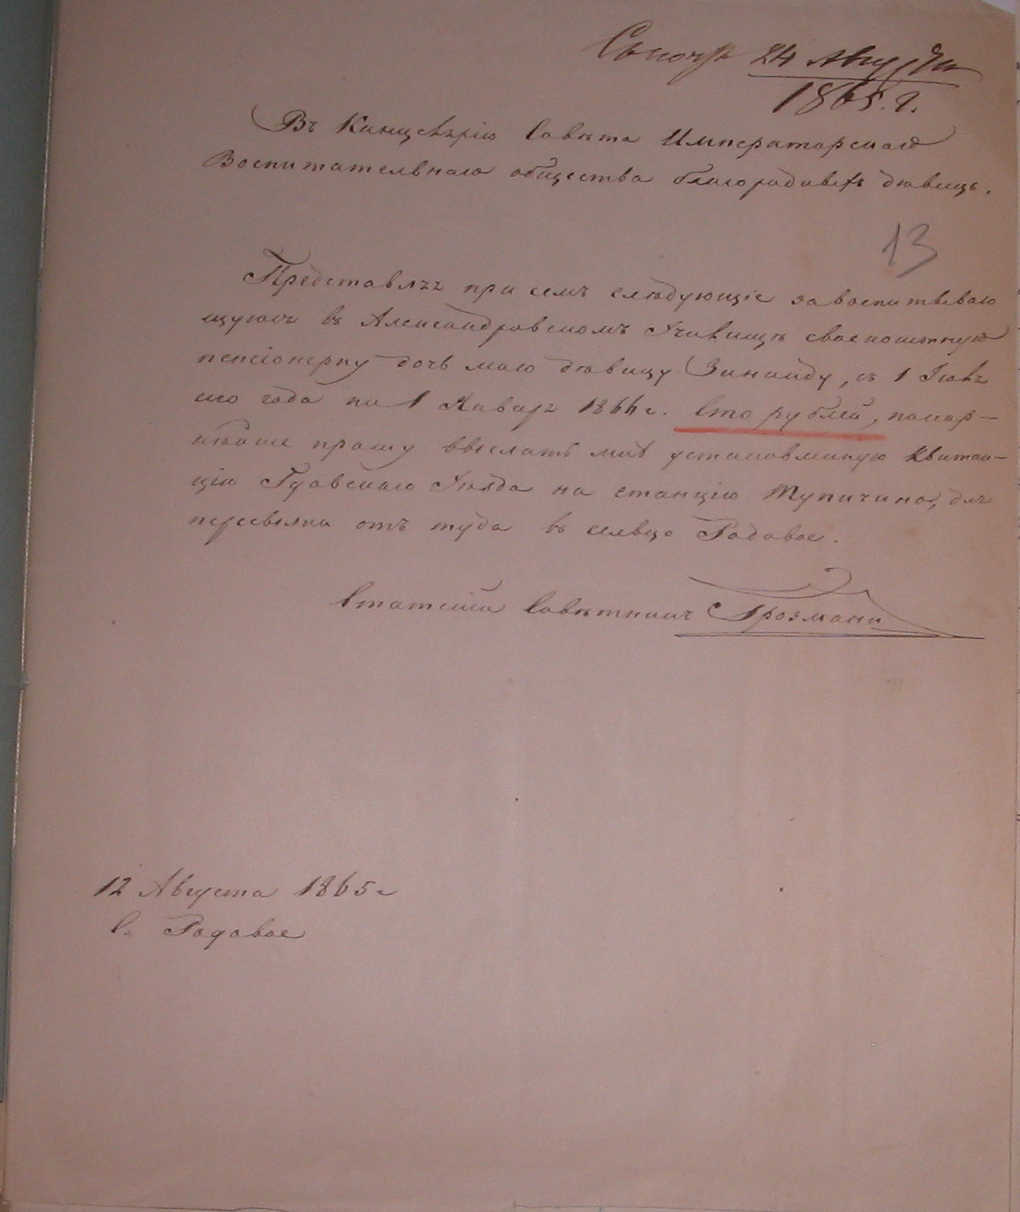 24 Августа
1865. г.
Въ Канцелярію Совѣта Императорскаго
Воспитательнаго общества благородныхъ дѣвицъ.
13
Представляя при семъ слѣдующіе за воспитываю
щуюся въ Александровскомъ Училищѣ своекоштную
пенсіонерку дочь мою дѣвицу Зинаиду, съ 1 Іюля
сего года по 1 Января 1866 г. Сто рублей, покор-
нѣйше прошу выслать мнѣ установленную квитан-
цію Гдовскаго Уѣзда на станцію Тупичино, для
пересылки отъ туда въ сельцо Радовое.
Статскій Совѣтникъ Грозманъ
12 Августа 1865 г
С. Радовое